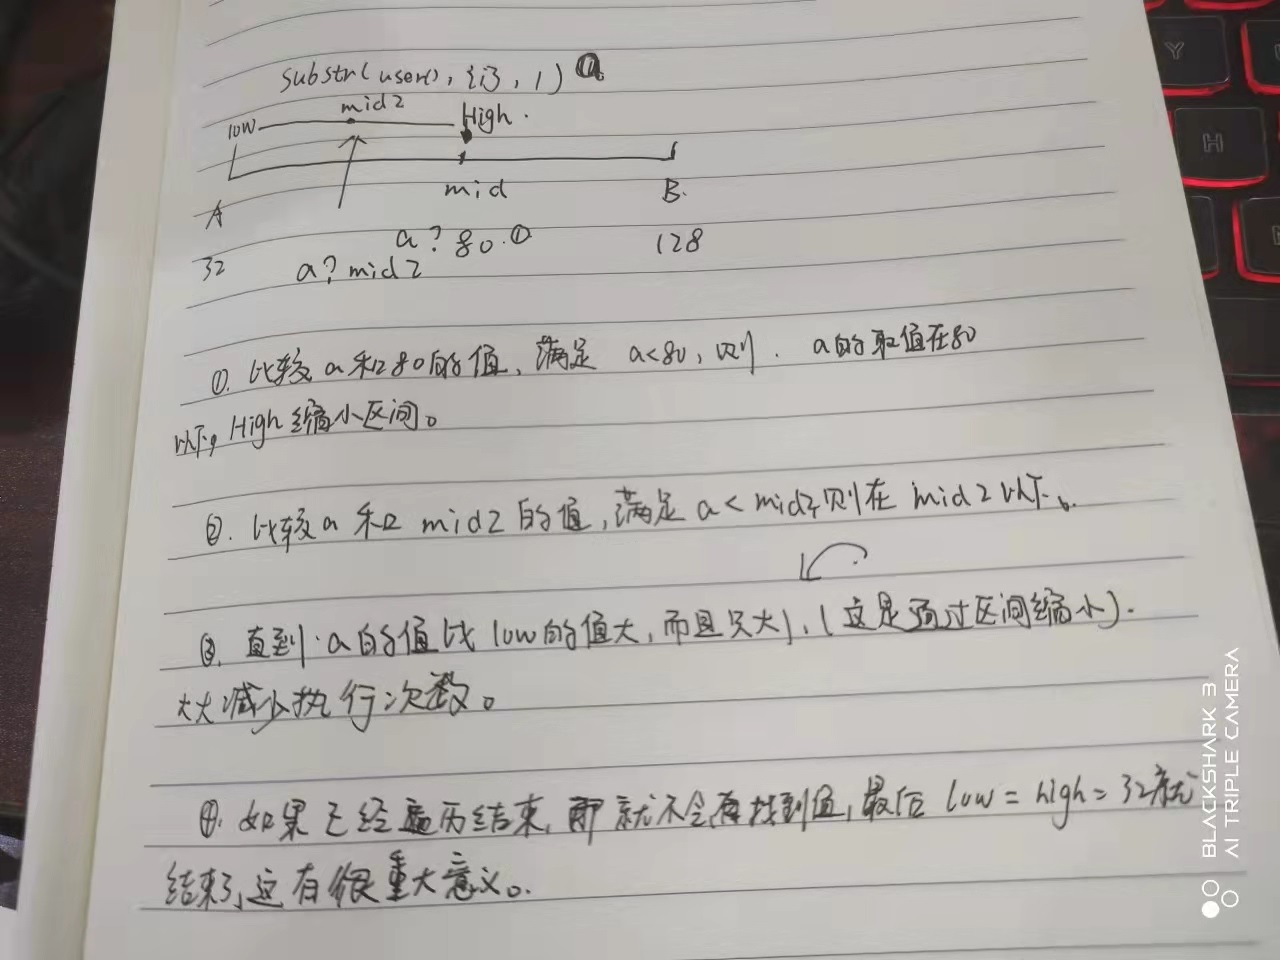 substr(user(), {i}, 1) a
mid2
low
High.
mid
B.
A
a? 80.①
128
32
a? mid2
①. 比较a和80的值,满足 a<80,则. a的取值在80
以下,High缩小区间。
②. 比较a和 mid2 的值,满足 a< mid2,则在 mid2以下。
③. 直到.a的值比 low的值大,而且只大1.(这是通过区间缩小).
大大减少执行次数。
④. 如果已经遍历结束,那就不会再找到值,最后 low = high = 32就
结束了,这有很重大意义。.
BLACKSHARK 3
AI TRIPLE CAMERA
Y
H